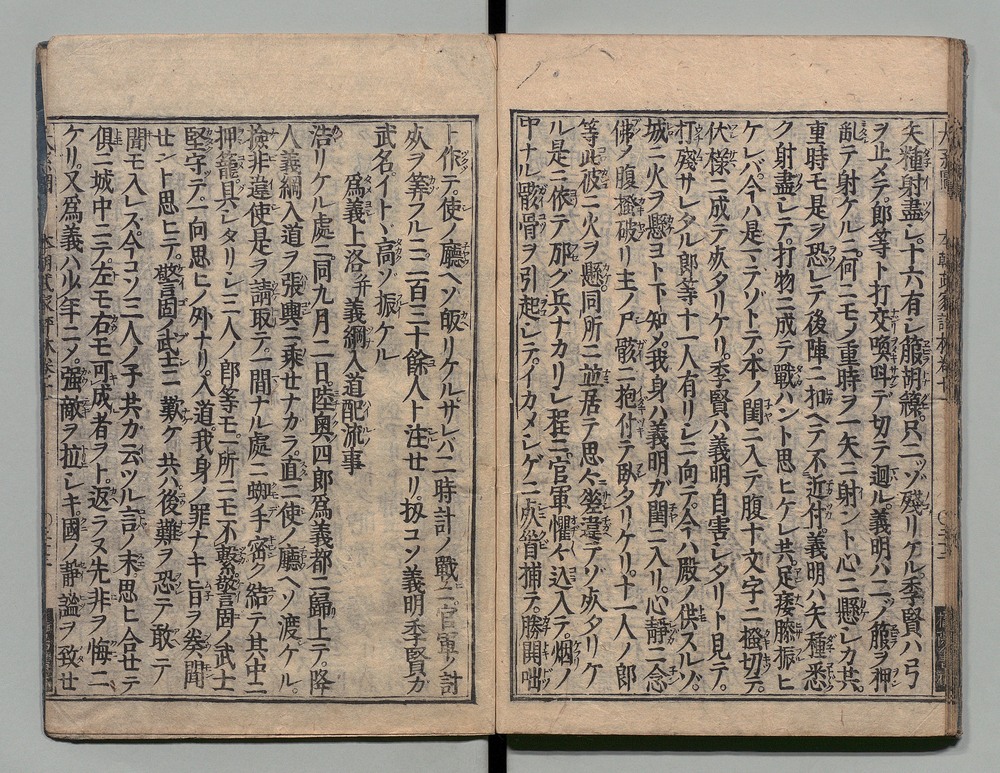 矢種射盡シ十六有シ箙胡籙只二ツゾ殘リケル季賢ハ弓
ヲ止メテ郎等ト打交喚叫デ切テ廻ル義明ハ二ノ箙ヲ押
亂テ射ケルニ何ニモノ重時ヲ一矢ニ射ント心ニ懸シカ共
重時モ是ヲ恐レテ後陣ニ扣ヘテ不近付義明ハ矢種悉
ク射盡シテ打物ニ成テ戰ハント思ヒケレ共足痿膝振ヒ
ケレバ今ハ是マテゾトテ本ノ閨ニ入テ腹十文字ニ搔切テ
伏樣ニ成テ死タリケリ季賢ハ義明自害シタリト見テ
打殘サレタル郎等十一人有リシニ向テ今ハ殿ノ供スルゾ
城ニ火ヲ懸ヨト下知メ我身ハ義明ガ閨ニ入リ心靜ニ念
佛メ腹搔破リ主ノ尸骸ニ抱付テ臥タリケリ十一人ノ郎
等此彼ニ火ヲ懸同所ニ並居テ思々差違テゾ死タリケ
ル是ニ依テ防グ兵ナカリシ程ニ官軍懼々込入テ烟ノ
中ナル骸骨ヲ引起シテイカメシゲニ死首捕テ勝鬨咄
ト作テ使ノ廳ヘソ皈リケルサレバ一時計ノ戰ニ官軍ノ討
死ヲ筭フルニ二百三十餘人ト注セリ扨コソ義明季賢カ
武名イトヽ高ソ振ケル
爲義上洛并義綱入道配流事
浩リケル處ニ同九月二日陸奥四郎爲義都ニ歸上テ降
人義綱入道ヲ張輿ニ乘セナカラ直ニ使ノ廳ヘソ渡ケル
撿非違使是ヲ請取テ一間ナル處ニ蜘手密ク結テ其中ニ
押籠具シタリシ三人ノ郎等モ一所ニモ不繫警固ノ武士
堅守テ一向思ヒノ外ナリ入道我身ノ罪ナキ旨ヲ奏聞
セント思ヒテ警固ノ武士ニ歎ケ共ハ後難ヲ恐テ敢テ
聞モ入レス今コソ三人ノ子共カ云ツル言ノ末思ヒ合セテ
俱ニ城中ニテ左モ右モ可成者ヲト返ラヌ先非ヲ悔ニ
ケリ又爲義ハ少年ニメ強敵ヲ拉シキ國ノ靜謐ヲ致セ